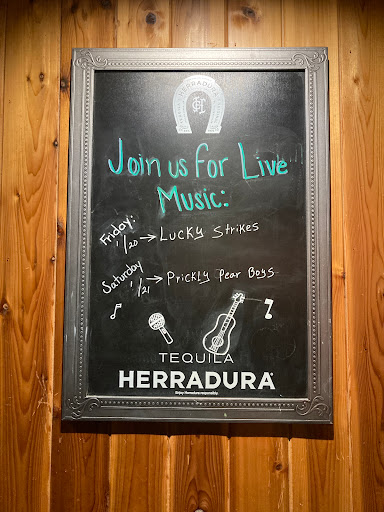 HERRADURA
Join us for Live
Music:
Friday:
1/20 → Lucky Strikes
Saturday
1/21 → Prickly Pear Boys
TEQUILA
HERRADURA
Enjoy Herradura responsibly.